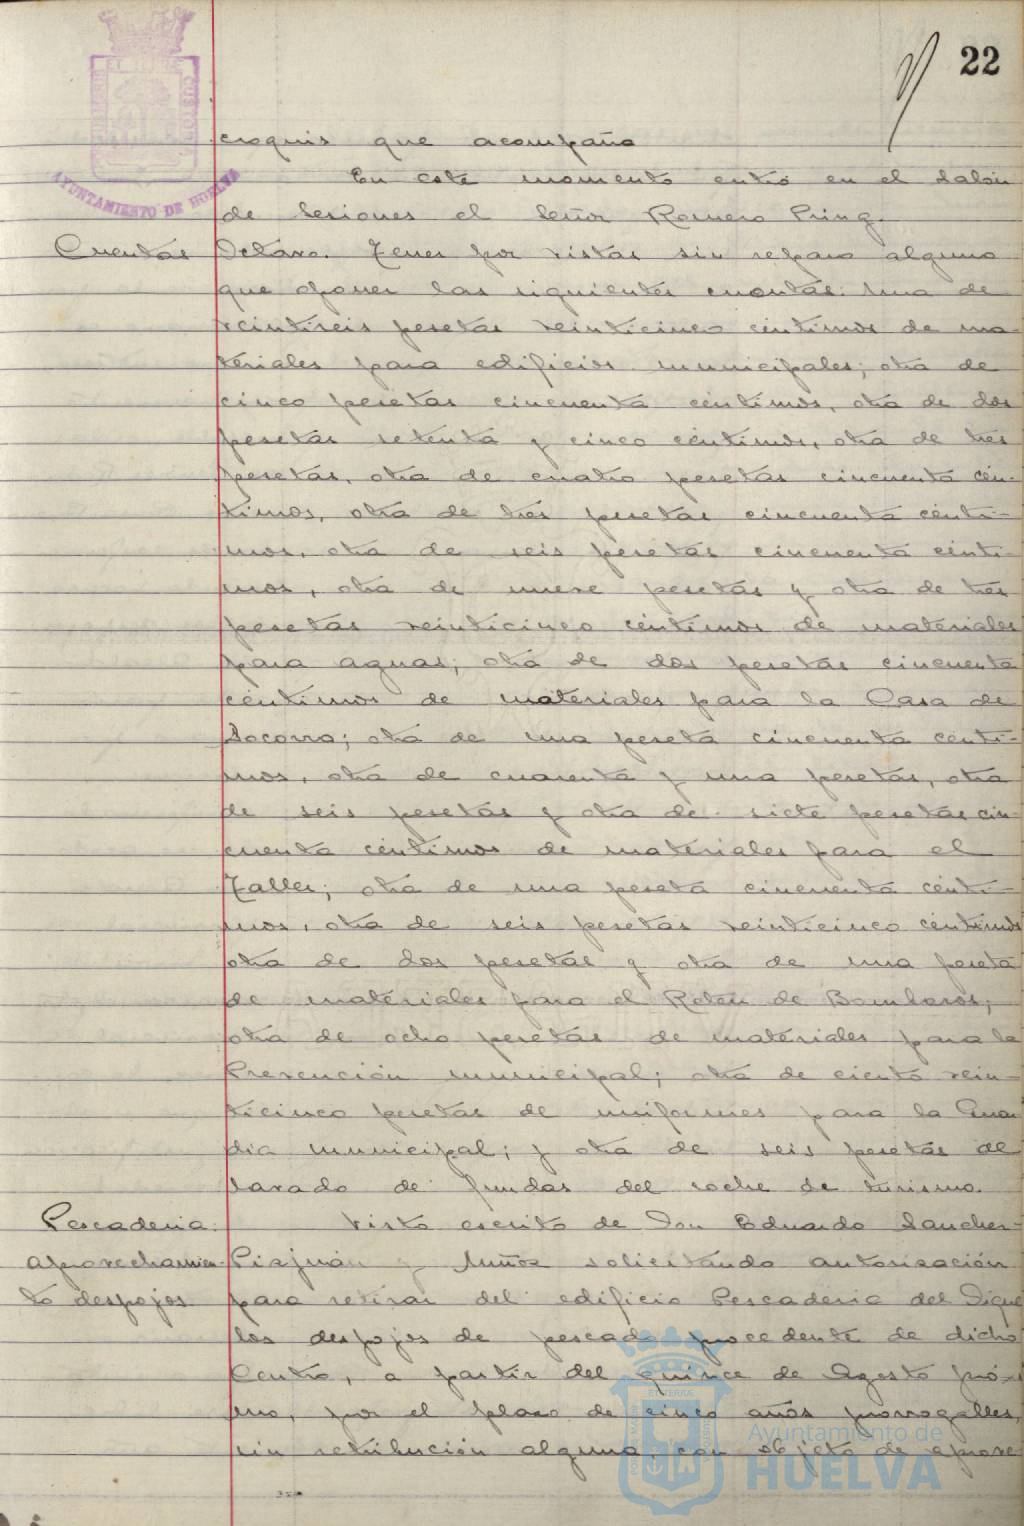 22
AYUNTAMIENTO DE HUELVA
croquis que acompaña
En este momento entró en el Salón
de Sesiones el Señor Romero Pring.
Cuentas
Octavo. Tener por vistas sin reparo alguno
que oponer las siguientes cuentas: Una de
veintiseis pesetas veinticinco céntimos de ma-
teriales para edificios municipales; otra de
cinco pesetas cincuenta céntimos, otra de dos
pesetas setenta y cinco céntimos, otra de tres
pesetas, otra de cuatro pesetas cincuenta cén-
timos, otra de tres pesetas cincuenta cénti-
mos, otra de seis pesetas cincuenta cénti-
mos, otra de nueve pesetas y otra de tres
pesetas veinticinco céntimos de materiales
para aguas; otra de dos pesetas cincuenta
céntimos de materiales para la Casa de
Socorro; otra de una peseta cincuenta cénti-
mos, otra de cuarenta y una pesetas, otra
de seis pesetas y otra de siete pesetas cin-
cuenta céntimos de materiales para el
Taller; otra de una peseta cincuenta cénti-
mos, otra de seis pesetas veinticinco céntimos
otra de dos pesetas y otra de una peseta
de materiales para el Retén de Bomberos;
otra de ocho pesetas de materiales para la
Prevención municipal; otra de ciento vein-
ticinco pesetas de uniformes para la Guar
dia municipal; y otra de seis pesetas de
lavado de fundas del coche de turismo.
Pescaderia:
aprovechamien-
to despojos
Visto escrito de Don Eduardo Sanchez-
Pizjuán y Muñoz solicitando autorización
para retirar del edificio Pescaderia del Dique
los despojos de pescado procedente de dicho
Centro, a partir del quince de Agosto próxi
mo, por el plazo de cinco años prorrogables,
sin retribución alguna, con objeto de aprove
Ayuntamiento de
HUELVA